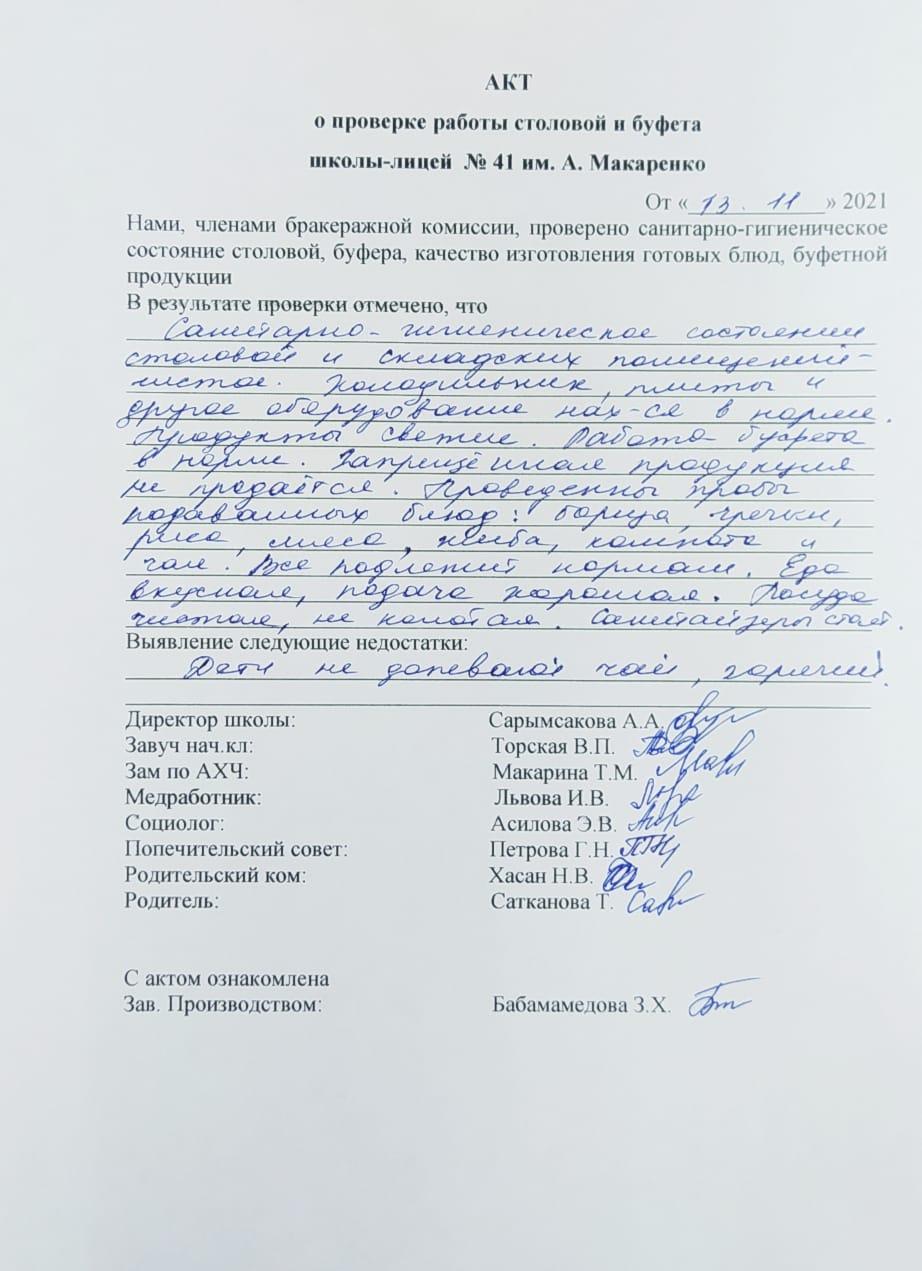 АКТ
о проверке работы столовой и буфета
школы-лицей № 41 им. А. Макаренко
От « 13. 11 » 2021
Нами, членами бракеражной комиссии, проверено санитарно-гигиеническое
состояние столовой, буфера, качество изготовления готовых блюд, буфетной
продукции
В результате проверки отмечено, что
Санитарно-гигиеническое состоянии
столовой и складских помещений -
чистое. Холодильник, плиты и
другое оборудование нах-ся в норме.
Продукты свежие. Работа буфета
в норме. Запрещённая продукция
не продаётся. Проведенны пробы
подаваемых блюд: борща, гречки,
риса, мяса, хлеба, компота и
чая. Все подлежит нормам. Еда
вкусная, подача хорошая. Посуда
чистая, не колотая. Санитайзеры стоят.
Выявление следующие недостатки:
Дети не допевают чай, горячий.
Директор школы: Сарымсакова А.А.
Завуч нач.кл: Торская В.П.
Зам по АХЧ: Макарина Т.М.
Медработник: Львова И.В.
Социолог: Асилова Э.В.
Попечительский совет: Петрова Г.Н.
Родительский ком: Хасан Н.В.
Родитель: Сатканова Т.
С актом ознакомлена
Зав. Производством: Бабамамедова З.Х.